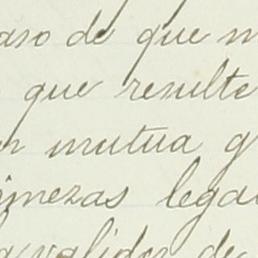 aso de que n
que resulte
n mutua g
imezas lega
validor de